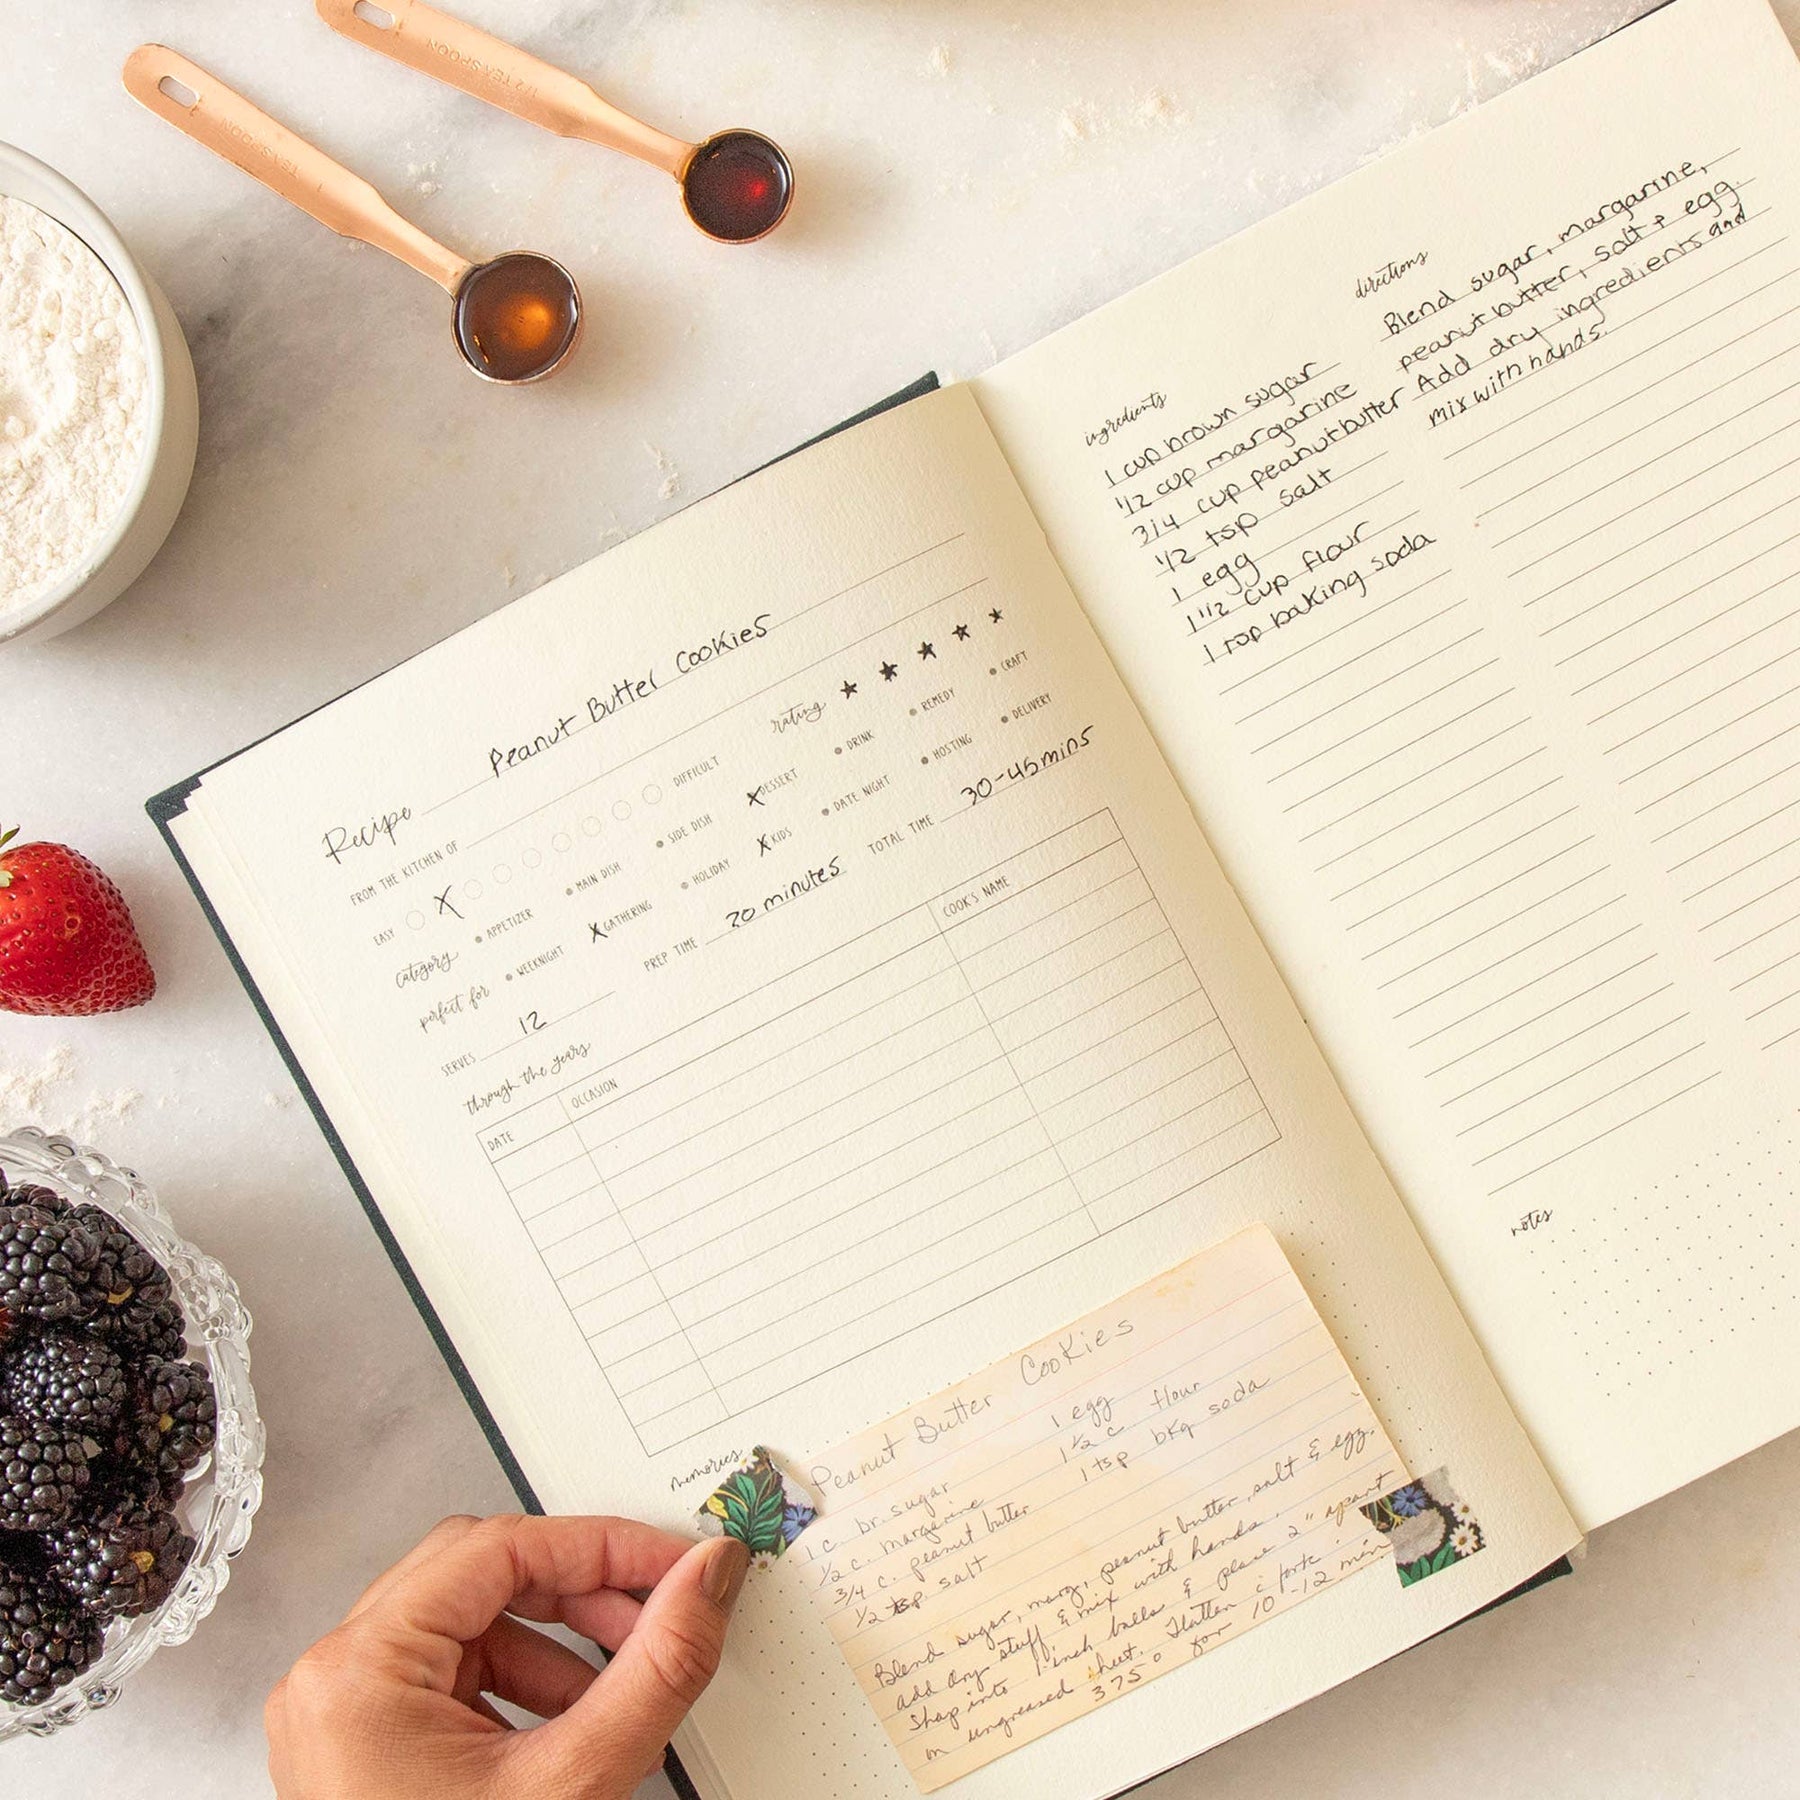 1 TEASPOON
1/2 TEASPOON
Recipe Peanut Butter Cookies
FROM THE KITCHEN OF
EASY DIFFICULT
rating
category APPETIZER MAIN DISH SIDE DISH DESSERT DRINK REMEDY CRAFT
perfect for WEEKNIGHT GATHERING HOLIDAY KIDS DATE NIGHT HOSTING DELIVERY
SERVES 12 PREP TIME 20 minutes TOTAL TIME 30-45 mins
through the years
DATE OCCASION COOK'S NAME
memories
Peanut Butter Cookies
1 c. br. sugar 1 egg
1/2 c. margarine 1 1/2 c flour
3/4 c. peanut butter 1 tsp bkg soda
1/2 tsp. salt
Blend sugar, marg, peanut butter, salt & egg.
add dry stuff & mix with hands.
Shap into 1-inch balls & place 2" apart
on ungreased sheet. Flatten c fork.
375° for 10-12 min
ingredients
1 cup brown sugar
1/2 cup margarine
3/4 cup peanutbutter
1/2 tsp salt
1 egg
1 1/2 cup flour
1 tsp baking soda
directions
Blend sugar, margarine,
peanutbutter, salt + egg.
Add dry ingredients and
mix with hands.
notes